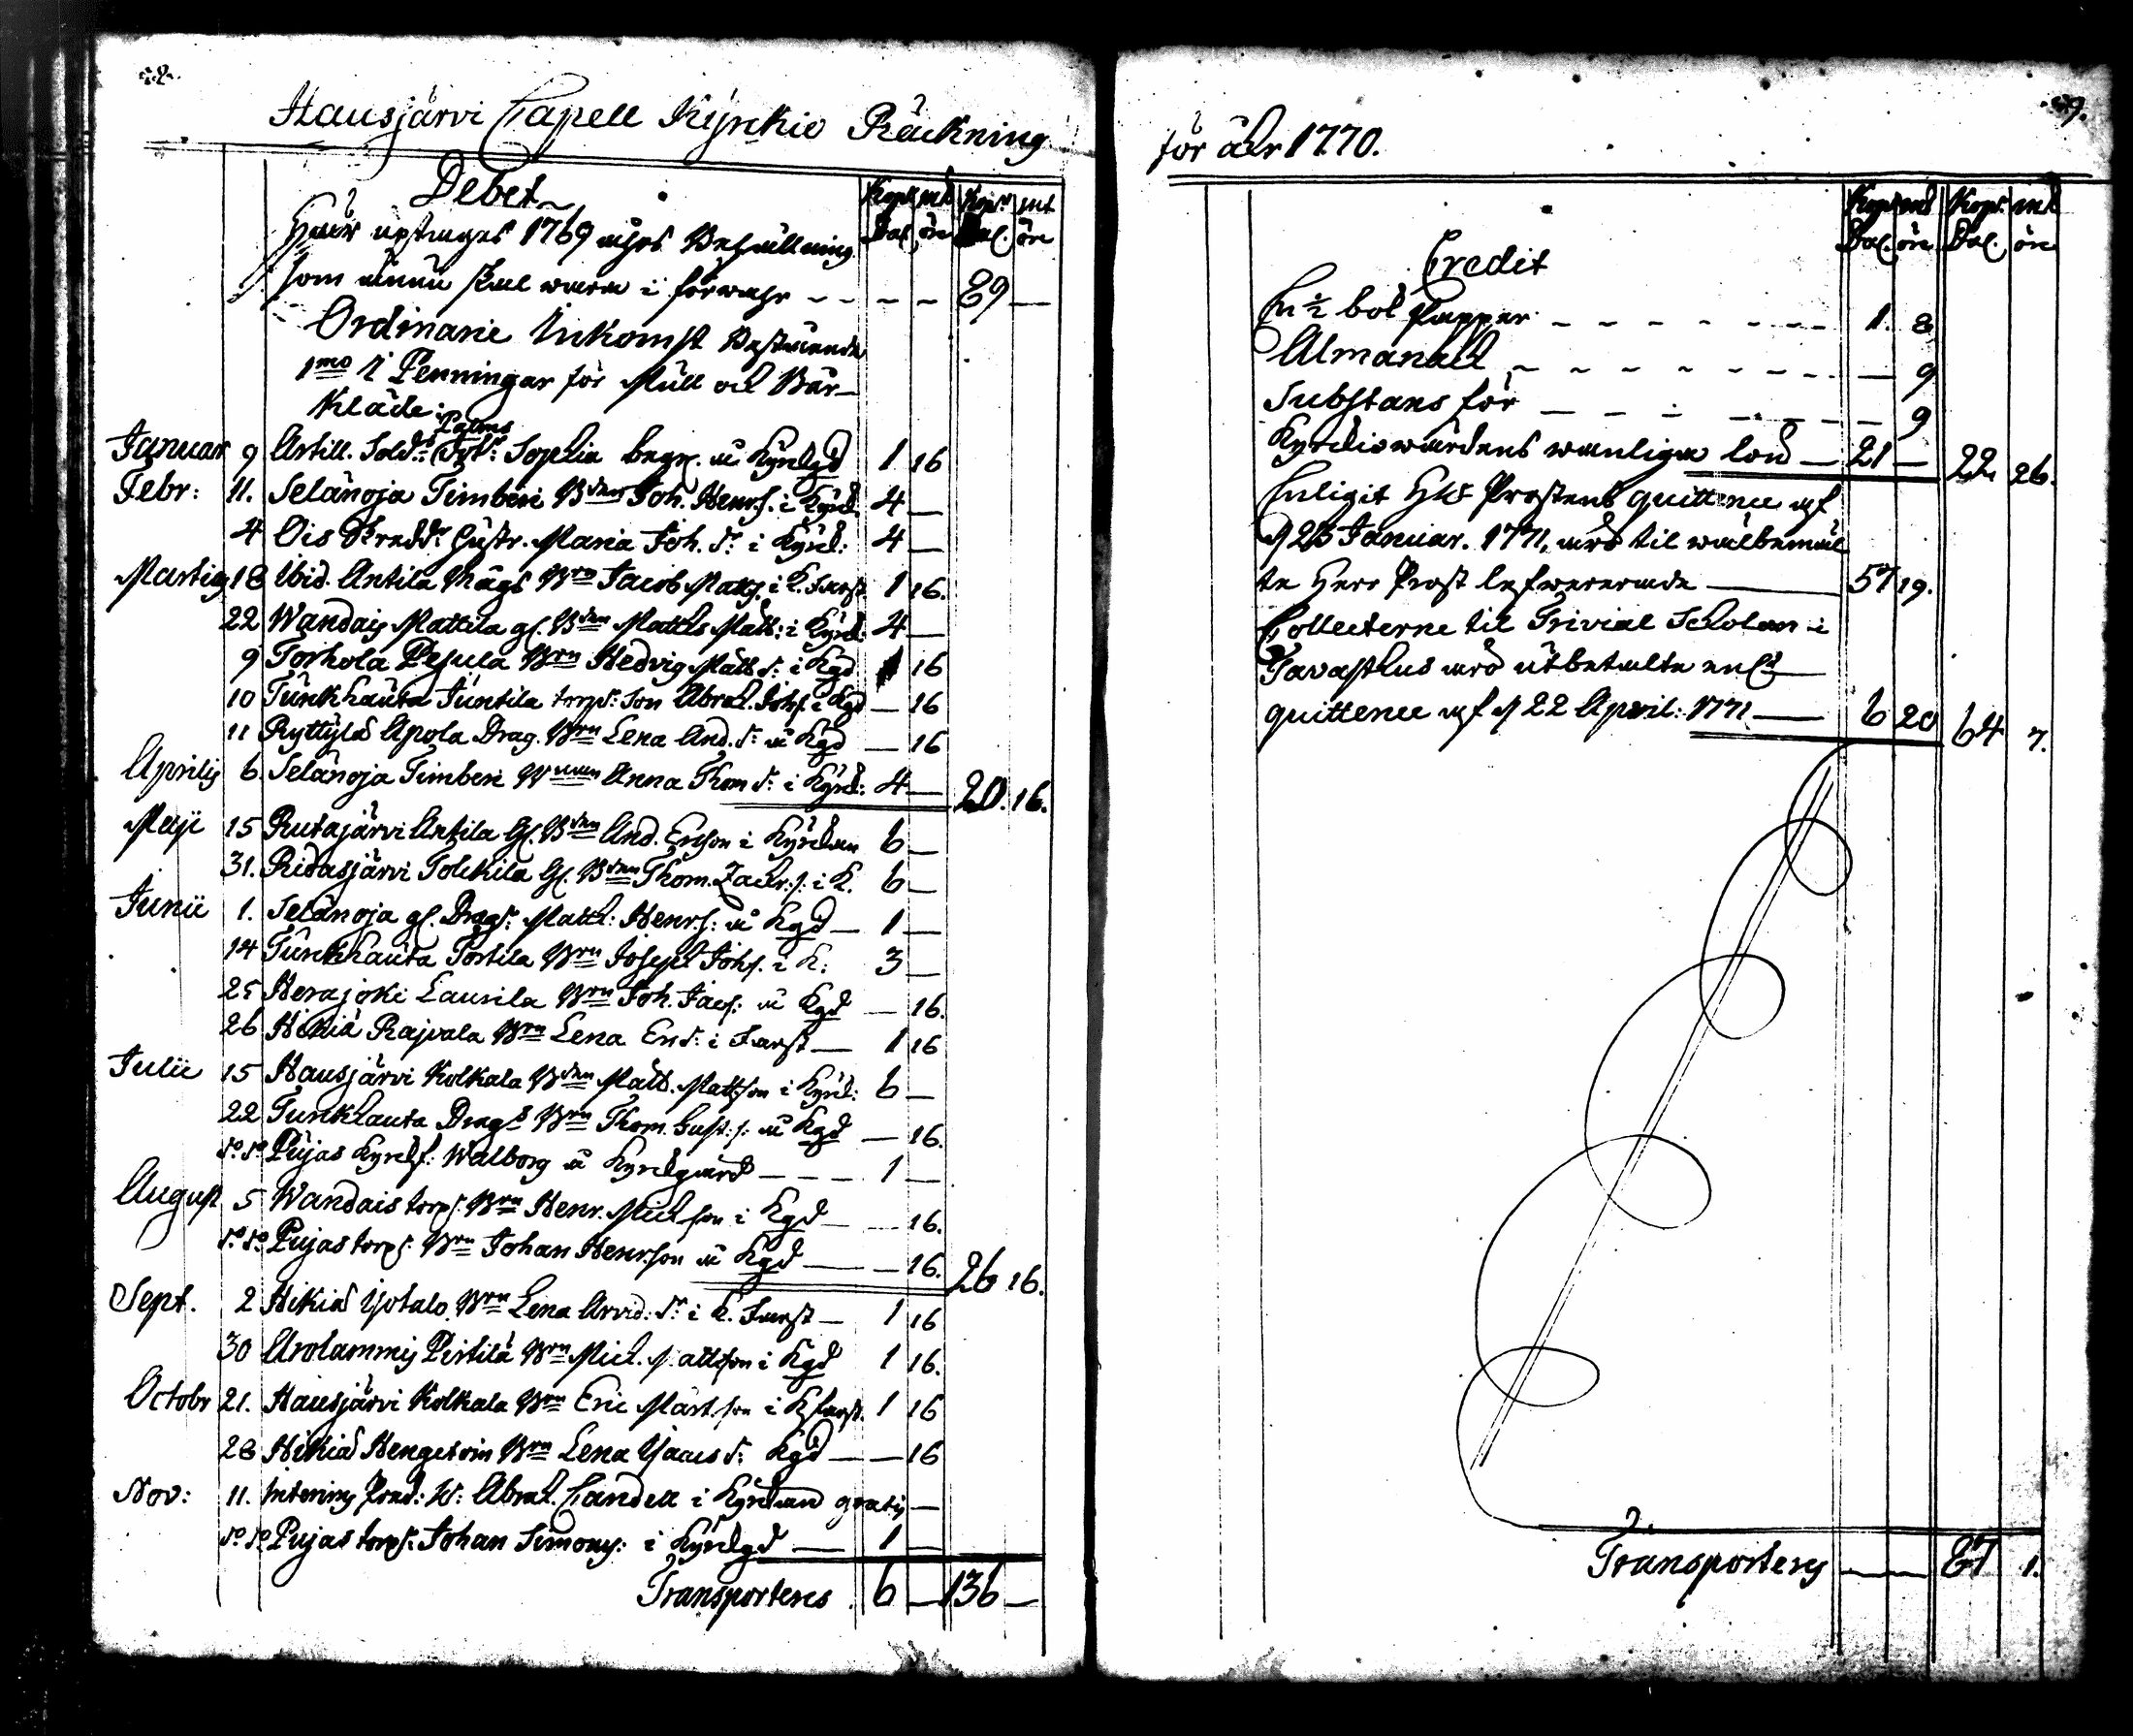 Hausjärvi Capell Kyrckio Räckning
Debet
Kopr mt Kopr mt
Dal. öre Dal. öre
Häär uptages 1769 åhrs Behållning
som ännu skal wara i förwahr - - - - 89 —
Ordinarie Inkomst Bestående
1mo i Penningar för Mull och Bår-
Kläde:
Januar 9 Artill. Sold: Palms Sophia begr. å Kyrckgd 1 16
Febr: 11. Selänoja Timberi Bden Joh. Henrs. i Kyrck: 4 —
4 Ois Skredd: Hustr. Maria Joh. dr i Kyrck: 4 —
Martig 18 Ibid. Antila Mågs Brn Jacob Matts. i K. Farst 1 16.
22 Wandaig Mattila gl. Bden Matths Matts: i Kyrck: 4 —
9 Torhola Pesula Brn Hedvig Matts dr: i Kgd 1 16
10 Turkhauta Juntila torp: son Abrah. Johs. i Kgd — 16
11 Ryttylä Apola Drag. Brn Lena And. dr: å Kgd — 16
Aprilig 6. Selänoja Timberi Anna Thom dr: i Kyrck: 4 — 20. 16.
Maji 15 Rutajärvi Antila Gl. Bden And. Ericson i Kyrckan 6 —
31. Ridasjärvi Tolckila Gl. Bden Thom. Zachr: s. i K. 6 —
Junii 1. Selänoja gl. Drag: Matth: Henrs: å Kgd — 1 —
14 Turkhauta Torttila Brn Joseph Johs. i K: 3 —
25 Herajoki Laurila Brn Joh. Jacs: å Kgd — 16.
26 Hikiä Rajvala Brn Lena Er. dr: i Farst — 1 16
Julii 15 Hausjärvi Kolkala Bden Math. Mattsson i Kyrck: 6 —
22 Turkhauta Drags Brn Thom. Gust: s: å Kgd — 16.
do do Pujas Kyrckf: Walborg å Kyrckgård — — — 1 —
August 5 Wandais torp. Brn Henr. Michson i Kgd — — 16.
do do Pujas torp: Brn Johan Henrson å Kgd — — 16. 26 16.
Sept. 2 Hikiä Yotalo Brn Lena Arvid: dr i K. Farst — 1 16
30 Arolammig Pertilä Brn Mich. Mattson i Kgd 1 16.
Octobr 21. Hausjärvi Kolkala Brn Eric Märt. son i K farst. 1 16
28 Hikiä Brn Lena Isaacs dr: Kgd — — 16
Nov: 11. Interims Pred: H: Abrah. Candell i Kyrckan gratis —
do do Pujas torp: Johan Simons: i Kyrckgd — 1 —
Transporteres 6 — 136 —
för åhr 1770.
Kopr mt Kopr. mt
Dal. öre Dal. öre
Credit
En ½ bok Papper - - - - - - - 1. 8
Almanach - - - - - - - — 9
Substans för — — — — 9
Kyrckiowärdens wanliga lön — 21 — 22 26.
Enligit Hr Prostens quittence af
d 23 Januar. 1771, äro til wälbemäl
te Herr Prost lefwererade — 57 19.
Collecterne til Trivial Scholan i
Tavasthus äro utbetalte enl:
quittence af d 22 April: 1771 — 6 20 64 7.
Transporteres — — 87 1.